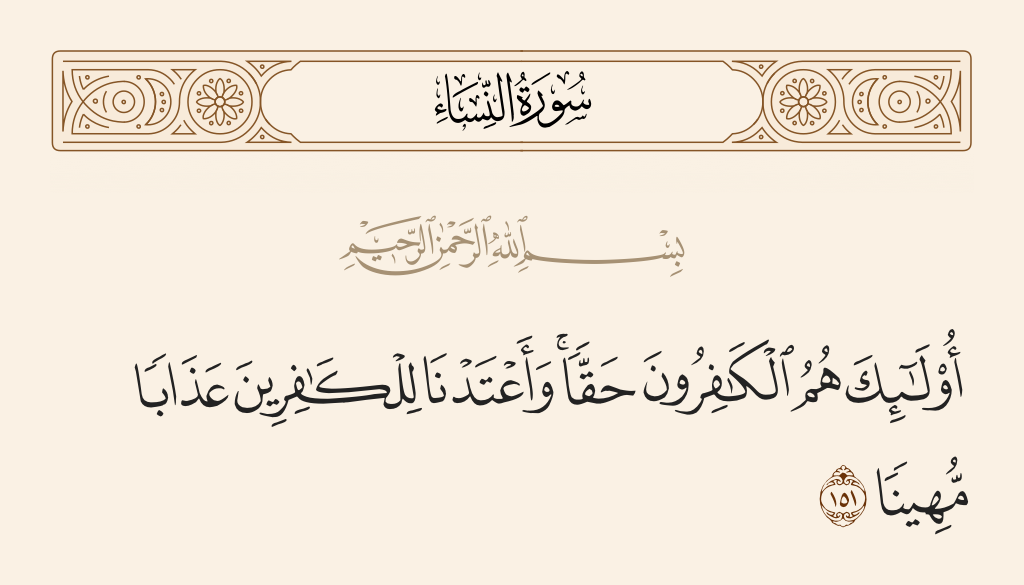 سُورَةُ النِّسَاءِ
بِسْمِ ٱللَّهِ ٱلرَّحْمَٰنِ ٱلرَّحِيمِ
أُو۟لَـٰٓئِكَ هُمُ ٱلْكَـٰفِرُونَ حَقًّا ۚ وَأَعْتَدْنَا لِلْكَـٰفِرِينَ عَذَابًا
مُّهِينًا ١٥١